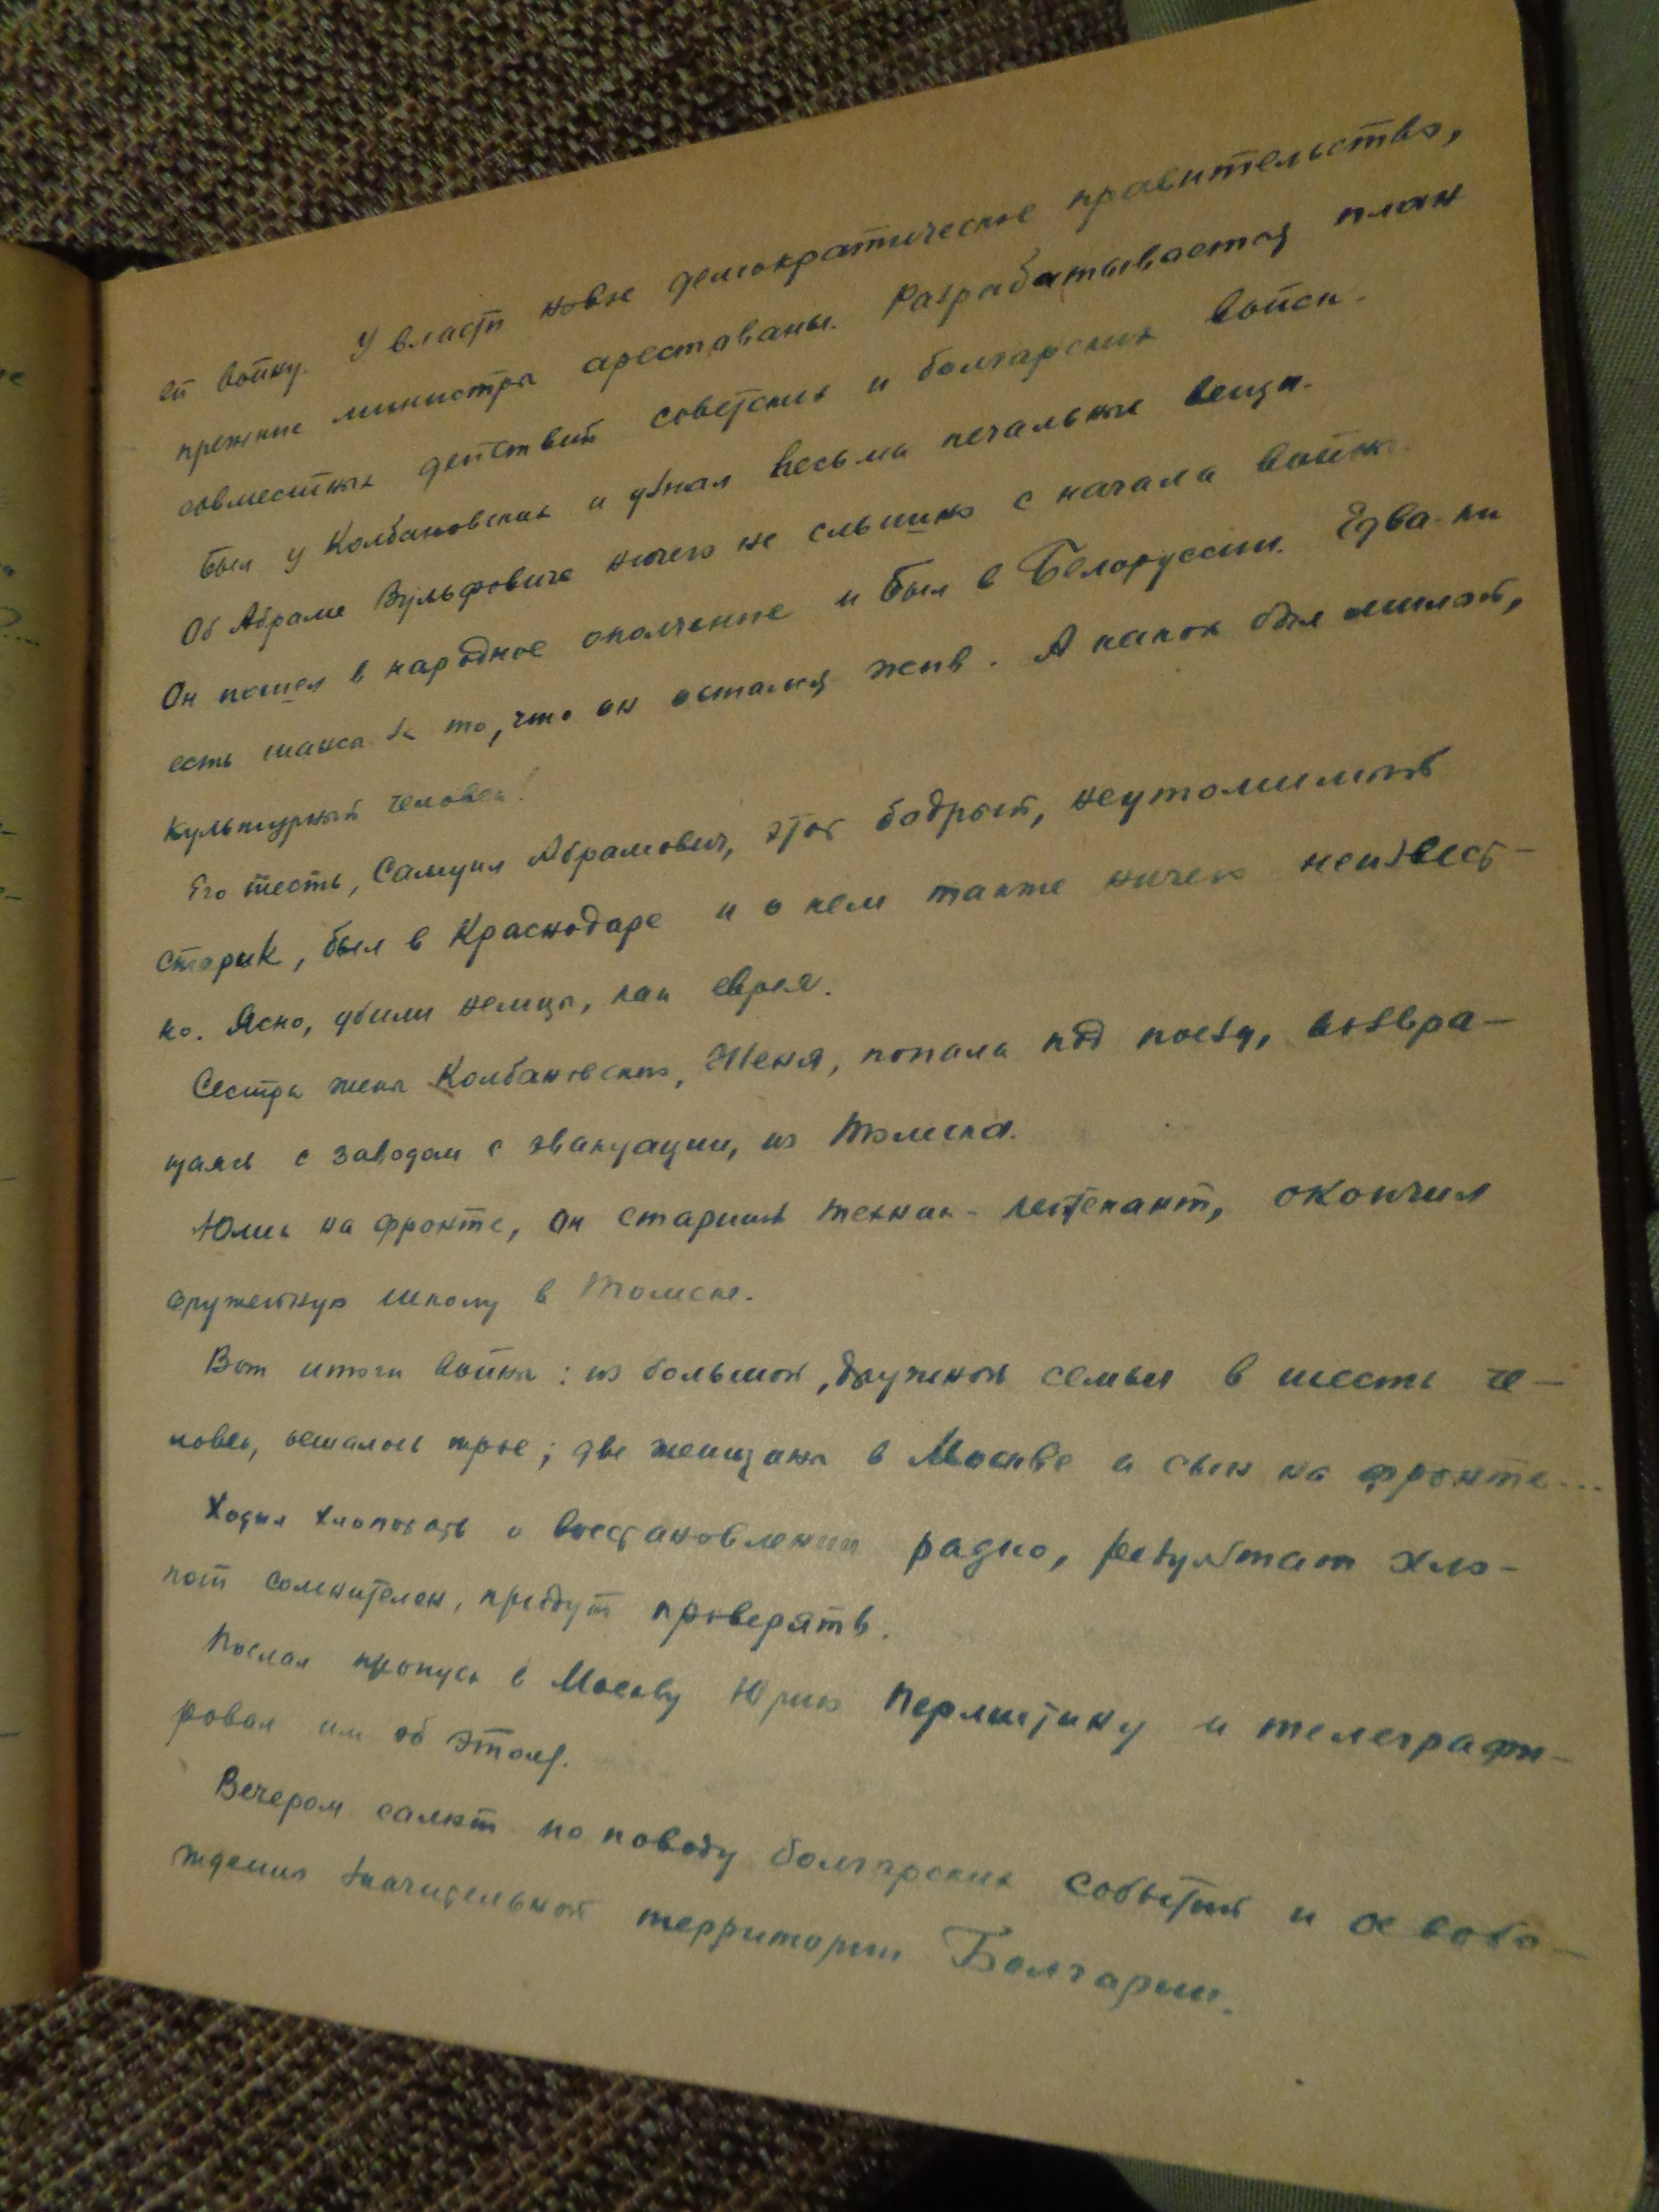 ей войну. У власти новое демократическое правительство,
прежние министры арестованы. Разрабатывается план
совместных действий советских и болгарских войск.
Был у Колбановских и узнал весьма печальные вещи.
Об Абраме Вульфовиче ничего не слышно с начала войны.
Он пошел в народное ополчение и был в Белоруссии. Едва-ли
есть шансы за то, что он остался жив. А какой был милый,
культурный человек!
Его тесть, Самуил Абрамович, этот бодрый, неутомимый
старик, был в Краснодаре и о нем также ничего неизвест-
но. Ясно, убили немцы, как еврея.
Сестра жены Колбановского, Женя, попала под поезд, возвра-
щаясь с заводом с эвакуации, из Томска.
Юлик на фронте, он старший техник-лейтенант, окончил
оружейную школу в Томске.
Вот итоги войны: из большой, дружной семьи в шесть че-
ловек, осталось трое; две женщины в Москве и сын на фронте...
Ходил хлопотать о восстановлении радио, результат хло-
пот сомнителен, придут проверять.
Послал пропуск в Москву Юрию Перлштику и телеграфи-
ровал им об этом.
Вечером салют по поводу болгарских событий и освобо-
ждения значительной территории Болгарии.